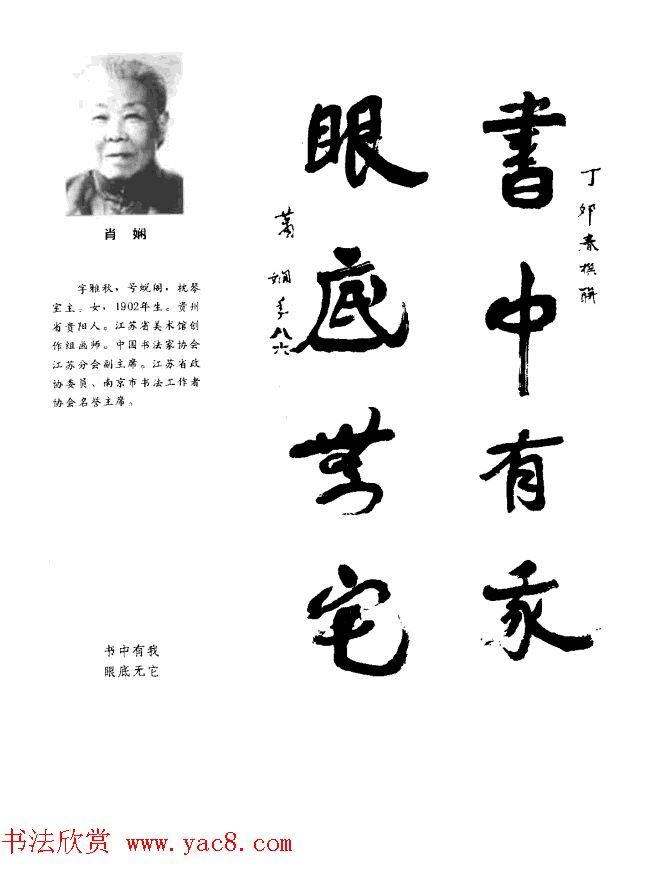 丁卯春撰联
書中有我
眼底無它
萧娴年八六
肖娴
字雅秋，号蜕阁，枕琴
室主。女，1902年生。贵州
省贵阳人。江苏省美术馆创
作组画师。中国书法家协会
江苏分会副主席。江苏省政
协委员、南京市书法工作者
协会名誉主席。
书中有我
眼底无它
书法欣赏 www.yac8.com